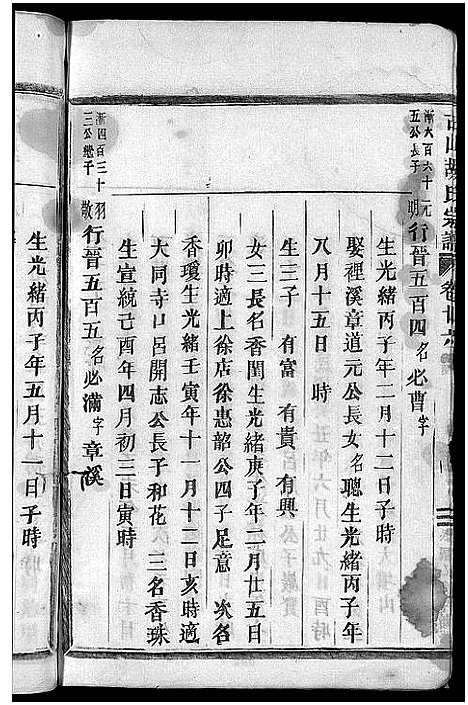 古山胡氏宗譜 卷廿六
漸大百六十
五公長子
元明行晉五百四名必曹字
生光緒丙子年二月十二日子時
娶裡溪章道元公長女名聰生光緒丙子年
八月十五日 時
生三子 有富 有貴 有興
女三長名香閨生光緒庚子年二月廿五日
卯時適上徐店徐惠韶公四子足意 次名
香瓊生光緒壬寅年十一月十二日亥時適
大同寺口呂開志公長子和花 三名香珠
生宣統己酉年四月初三日寅時
漸四百三十
三公繼子
羽敬行晉五百五名必滿字章溪
生光緒丙子年五月十一日子時